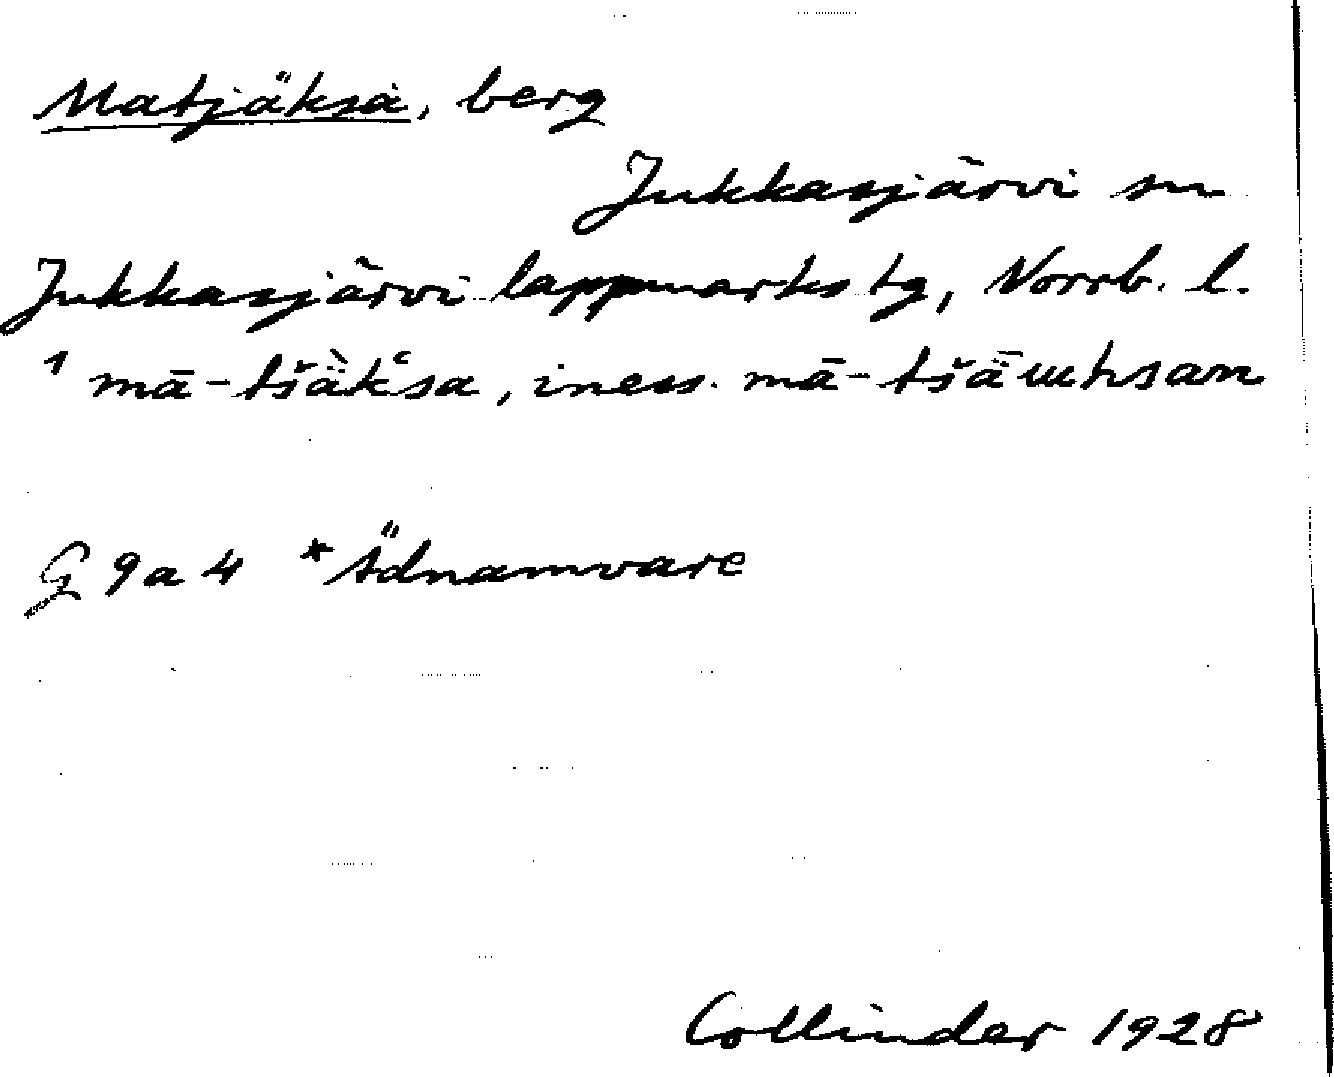 Matjäksa, berg
Jukkasjärvi sn
Jukkasjärvi lappmarks tg, Norrb. l.
1 mā-tšä̀kʿsa, iness. mā-tšǟɯhsan
G 9 a 4 *Ädnamvare
Collinder 1928